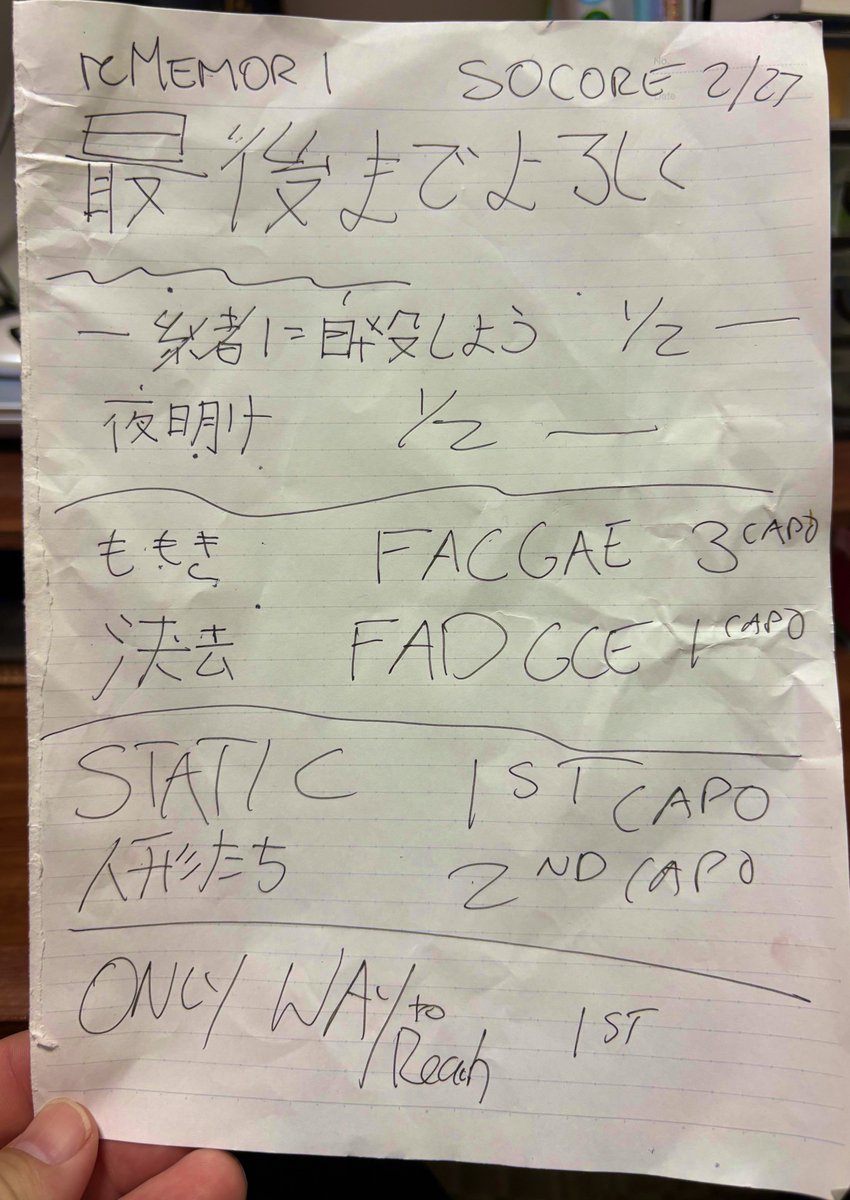 reMEMORI SOCORE 2/27
最後までよろしく
一緒に自殺しよう 1/2 —
夜明け 1/2 —
FACGAE 3 CAPO
FADGCE 1 CAPO
STATIC 1ST CAPO
人形たち 2ND CAPO
ONLY WAY to Reach 1ST